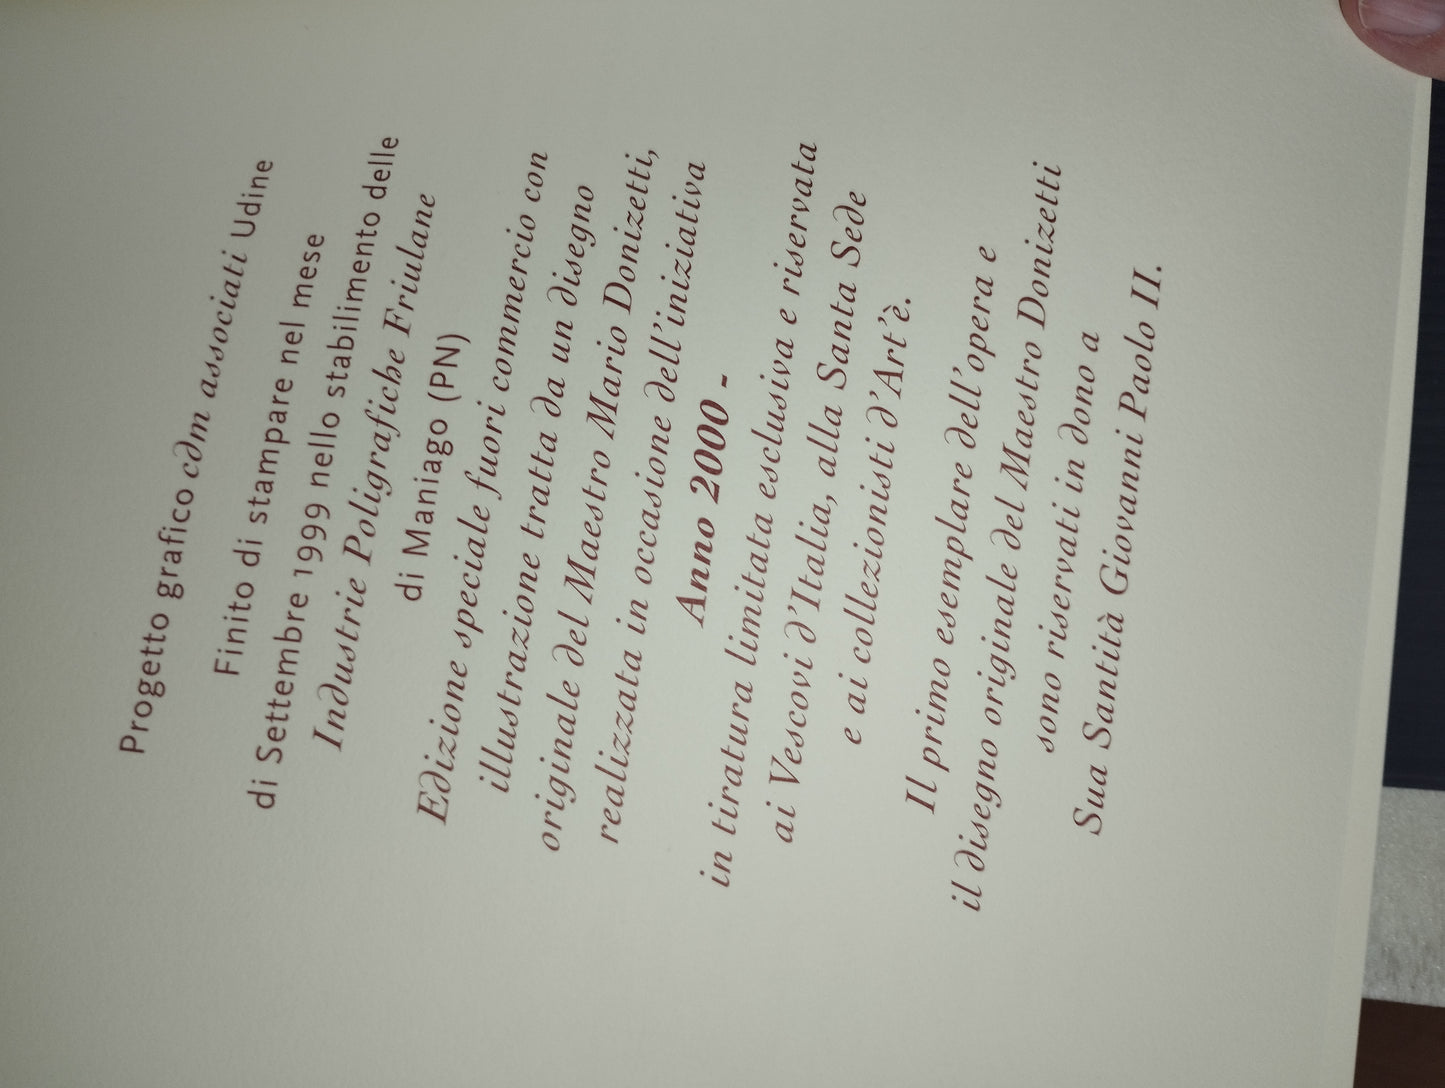 Progetto grafico cdm associati Udine
Finito di stampare nel mese
di Settembre 1999 nello stabilimento delle
Industrie Poligrafiche Friulane
di Maniago (PN)
Edizione speciale fuori commercio con
illustrazione tratta da un disegno
originale del Maestro Mario Donizetti,
realizzata in occasione dell'iniziativa
Anno 2000 -
in tiratura limitata esclusiva e riservata
ai Vescovi d'Italia, alla Santa Sede
e ai collezionisti d'Art'è.
Il primo esemplare dell'opera e
il disegno originale del Maestro Donizetti
sono riservati in dono a
Sua Santità Giovanni Paolo II.